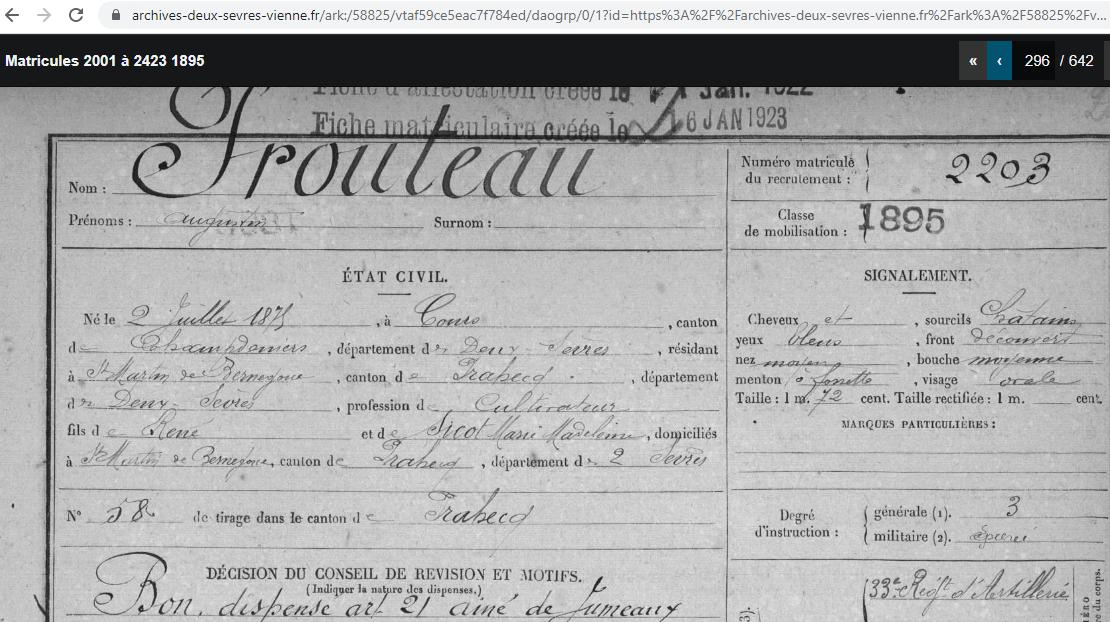 archives-deux-sevres-vienne.fr/ark:/58825/vtaf59ce5eac7f784ed/daogrp/0/1?id=https%3A%2F%2Farchives-deux-sevres-vienne.fr%2Fark%3A%2F58825%2Fv...
Matricules 2001 à 2423 1895
« ‹ 296 / 642
Fiche d'attestation créée le Jan. 1922
Fiche matriculaire créée le 6 JAN 1923
Nom : Prouteau
Prénoms : Surnom :
Numéro matricule du recrutement : 2203
Classe de mobilisation : 1895
ÉTAT CIVIL.
Né le 2 Juillet 1875, à Cours, canton
de Champdeniers, département des Deux-Sèvres, résidant
à St Martin de Bernegoue, canton de Prahecq, département
des Deux-Sevres, profession de Cultivateur
fils de René et de Sicot Marie Madeleine, domiciliés
à St Martin de Bernegoue, canton de Prahecq, département des 2 Sevres
N° 58 de tirage dans le canton de Prahecq
SIGNALEMENT.
Cheveux et, sourcils Chatains
yeux bleus, front découvert
nez moyen, bouche moyenne
menton à fossette, visage ovale
Taille : 1 m. 72 cent. Taille rectifiée : 1 m. cent.
MARQUES PARTICULIÈRES :
Degré d'instruction :
générale (1). 3
militaire (2).
DÉCISION DU CONSEIL DE REVISION ET MOTIFS.
(Indiquer la nature des dispenses.)
Bon, dispensé art 21 ainé de jumeaux
33e Régt d'Artillerie